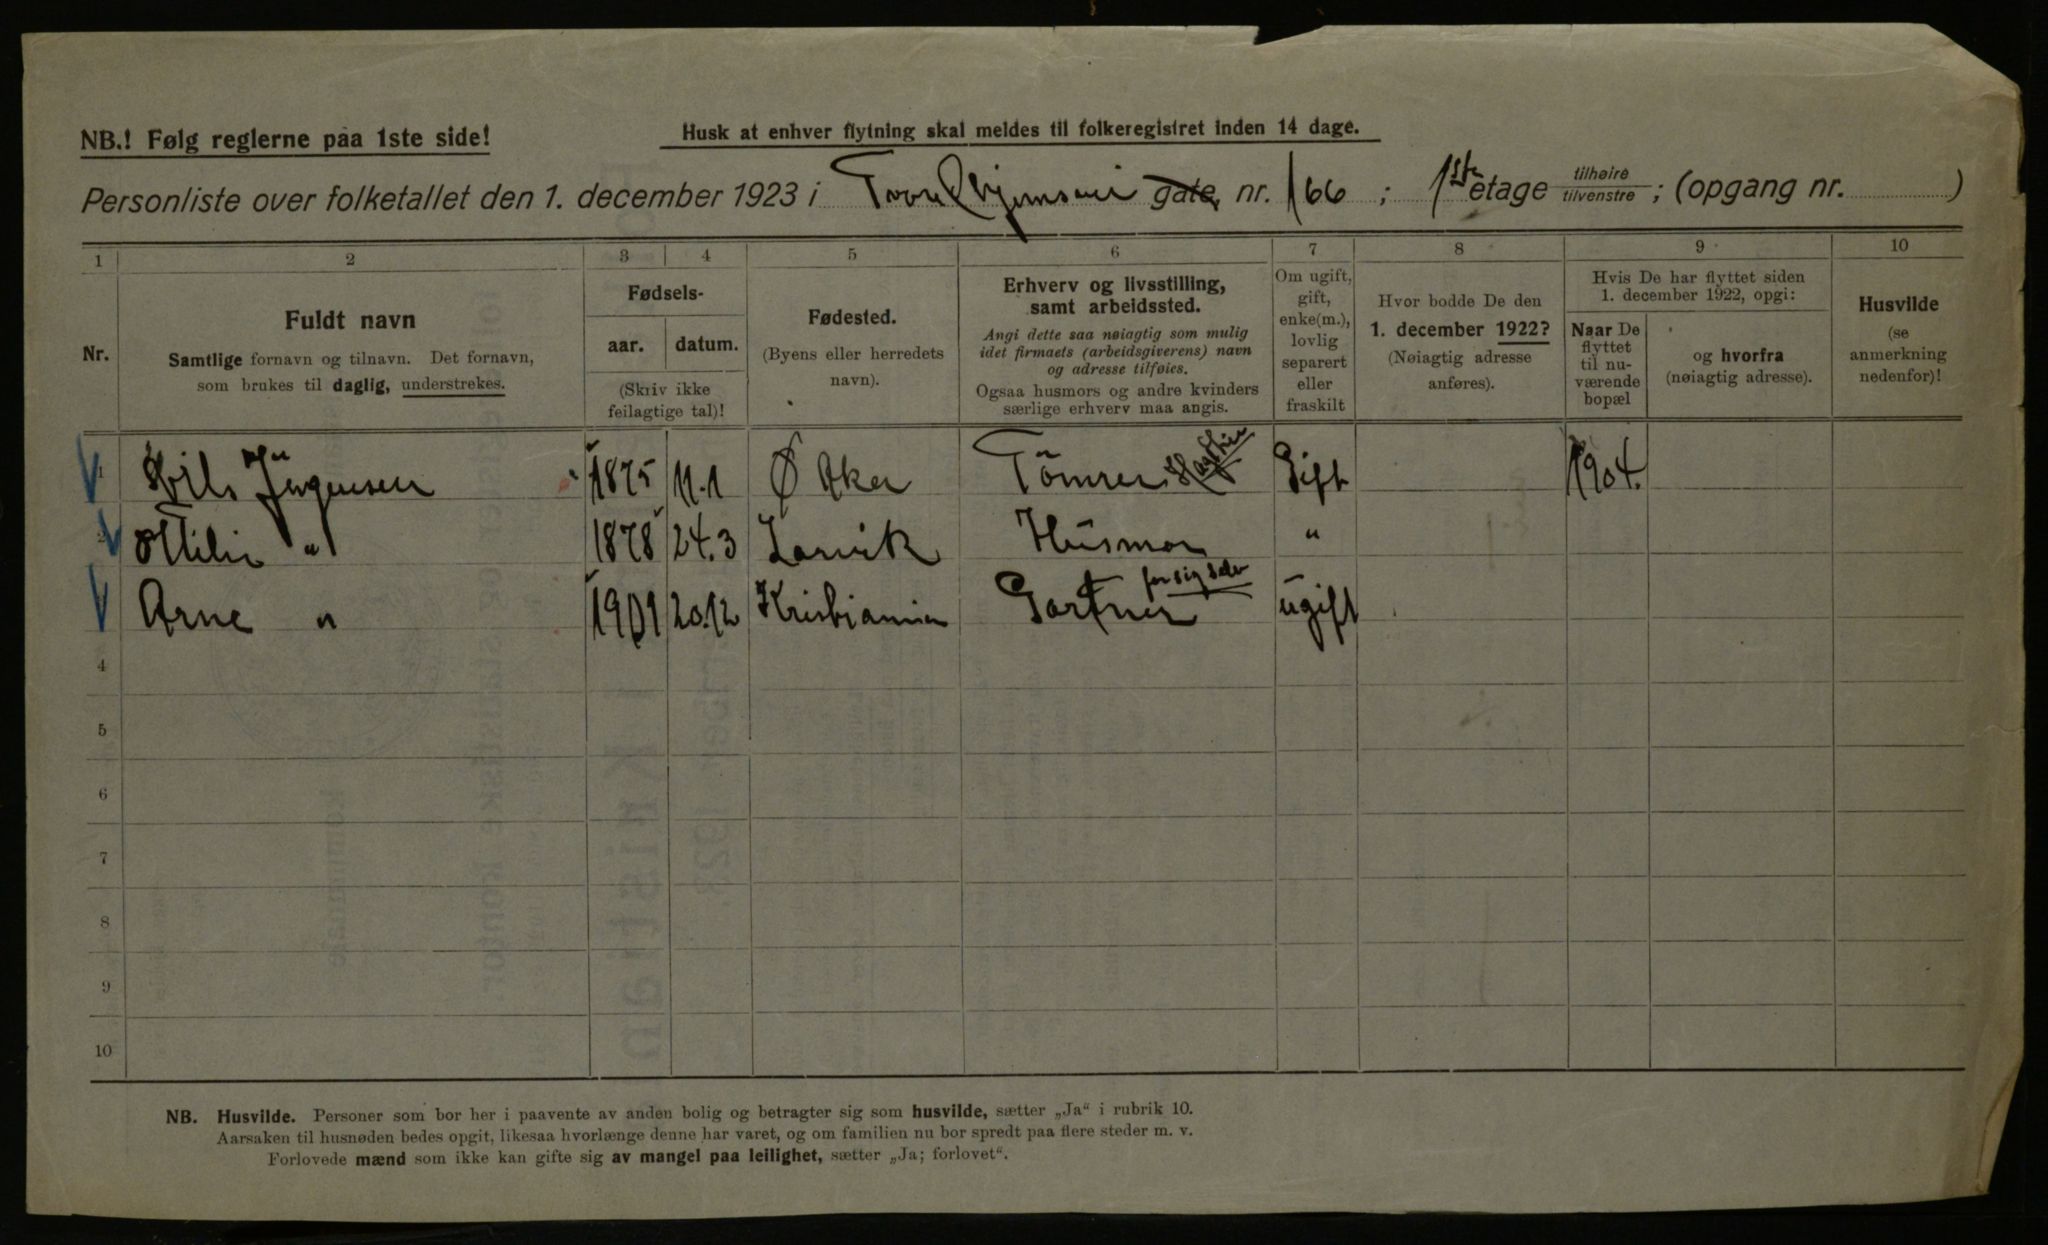 NB.! Følg reglerne paa 1ste side!
Husk at enhver flytning skal meldes til folkeregistret inden 14 dage.
Personliste over folketallet den 1. december 1923 i gate, nr. 166 ; 1ste etage tilhøire tilvenstre ; (opgang nr. )
1 2 3 4 5 6 7 8 9 10
Nr.
Fuldt navn
Samtlige fornavn og tilnavn. Det fornavn,
som brukes til daglig, understrekes.
Fødsels-
aar. datum.
(Skriv ikke
feilagtige tal)!
Fødested.
(Byens eller herredets
navn).
Erhverv og livsstilling,
samt arbeidssted.
Angi dette saa nøiagtig som mulig
idet firmaets (arbeidsgiverens) navn
og adresse tilføies.
Ogsaa husmors og andre kvinders
særlige erhverv maa angis.
Om ugift,
gift,
enke(m.),
lovlig
separert
eller
fraskilt
Hvor bodde De den
1. december 1922?
(Nøiagtig adresse
anføres).
Hvis De har flyttet siden
1. december 1922, opgi:
Naar De
flyttet
til nu-
værende
bopæl
og hvorfra
(nøiagtig adresse).
Husvilde
(se
anmerkning
nedenfor)!
1 Nils Jürgensen 1875 11.1 Ø Aker Tömrer Gift 1904.
2 Ottilie " 1878 24.3 Larvik Husmor "
Arne " 1901 20.12 Kristiania Gartner for sig selv ugift
4
5
6
7
8
9
10
NB. Husvilde. Personer som bor her i paavente av anden bolig og betragter sig som husvilde, sætter „Ja“ i rubrik 10.
Aarsaken til husnøden bedes opgit, likesaa hvorlænge denne har varet, og om familien nu bor spredt paa flere steder m. v.
Forlovede mænd som ikke kan gifte sig av mangel paa leilighet, sætter „Ja; forlovet“.